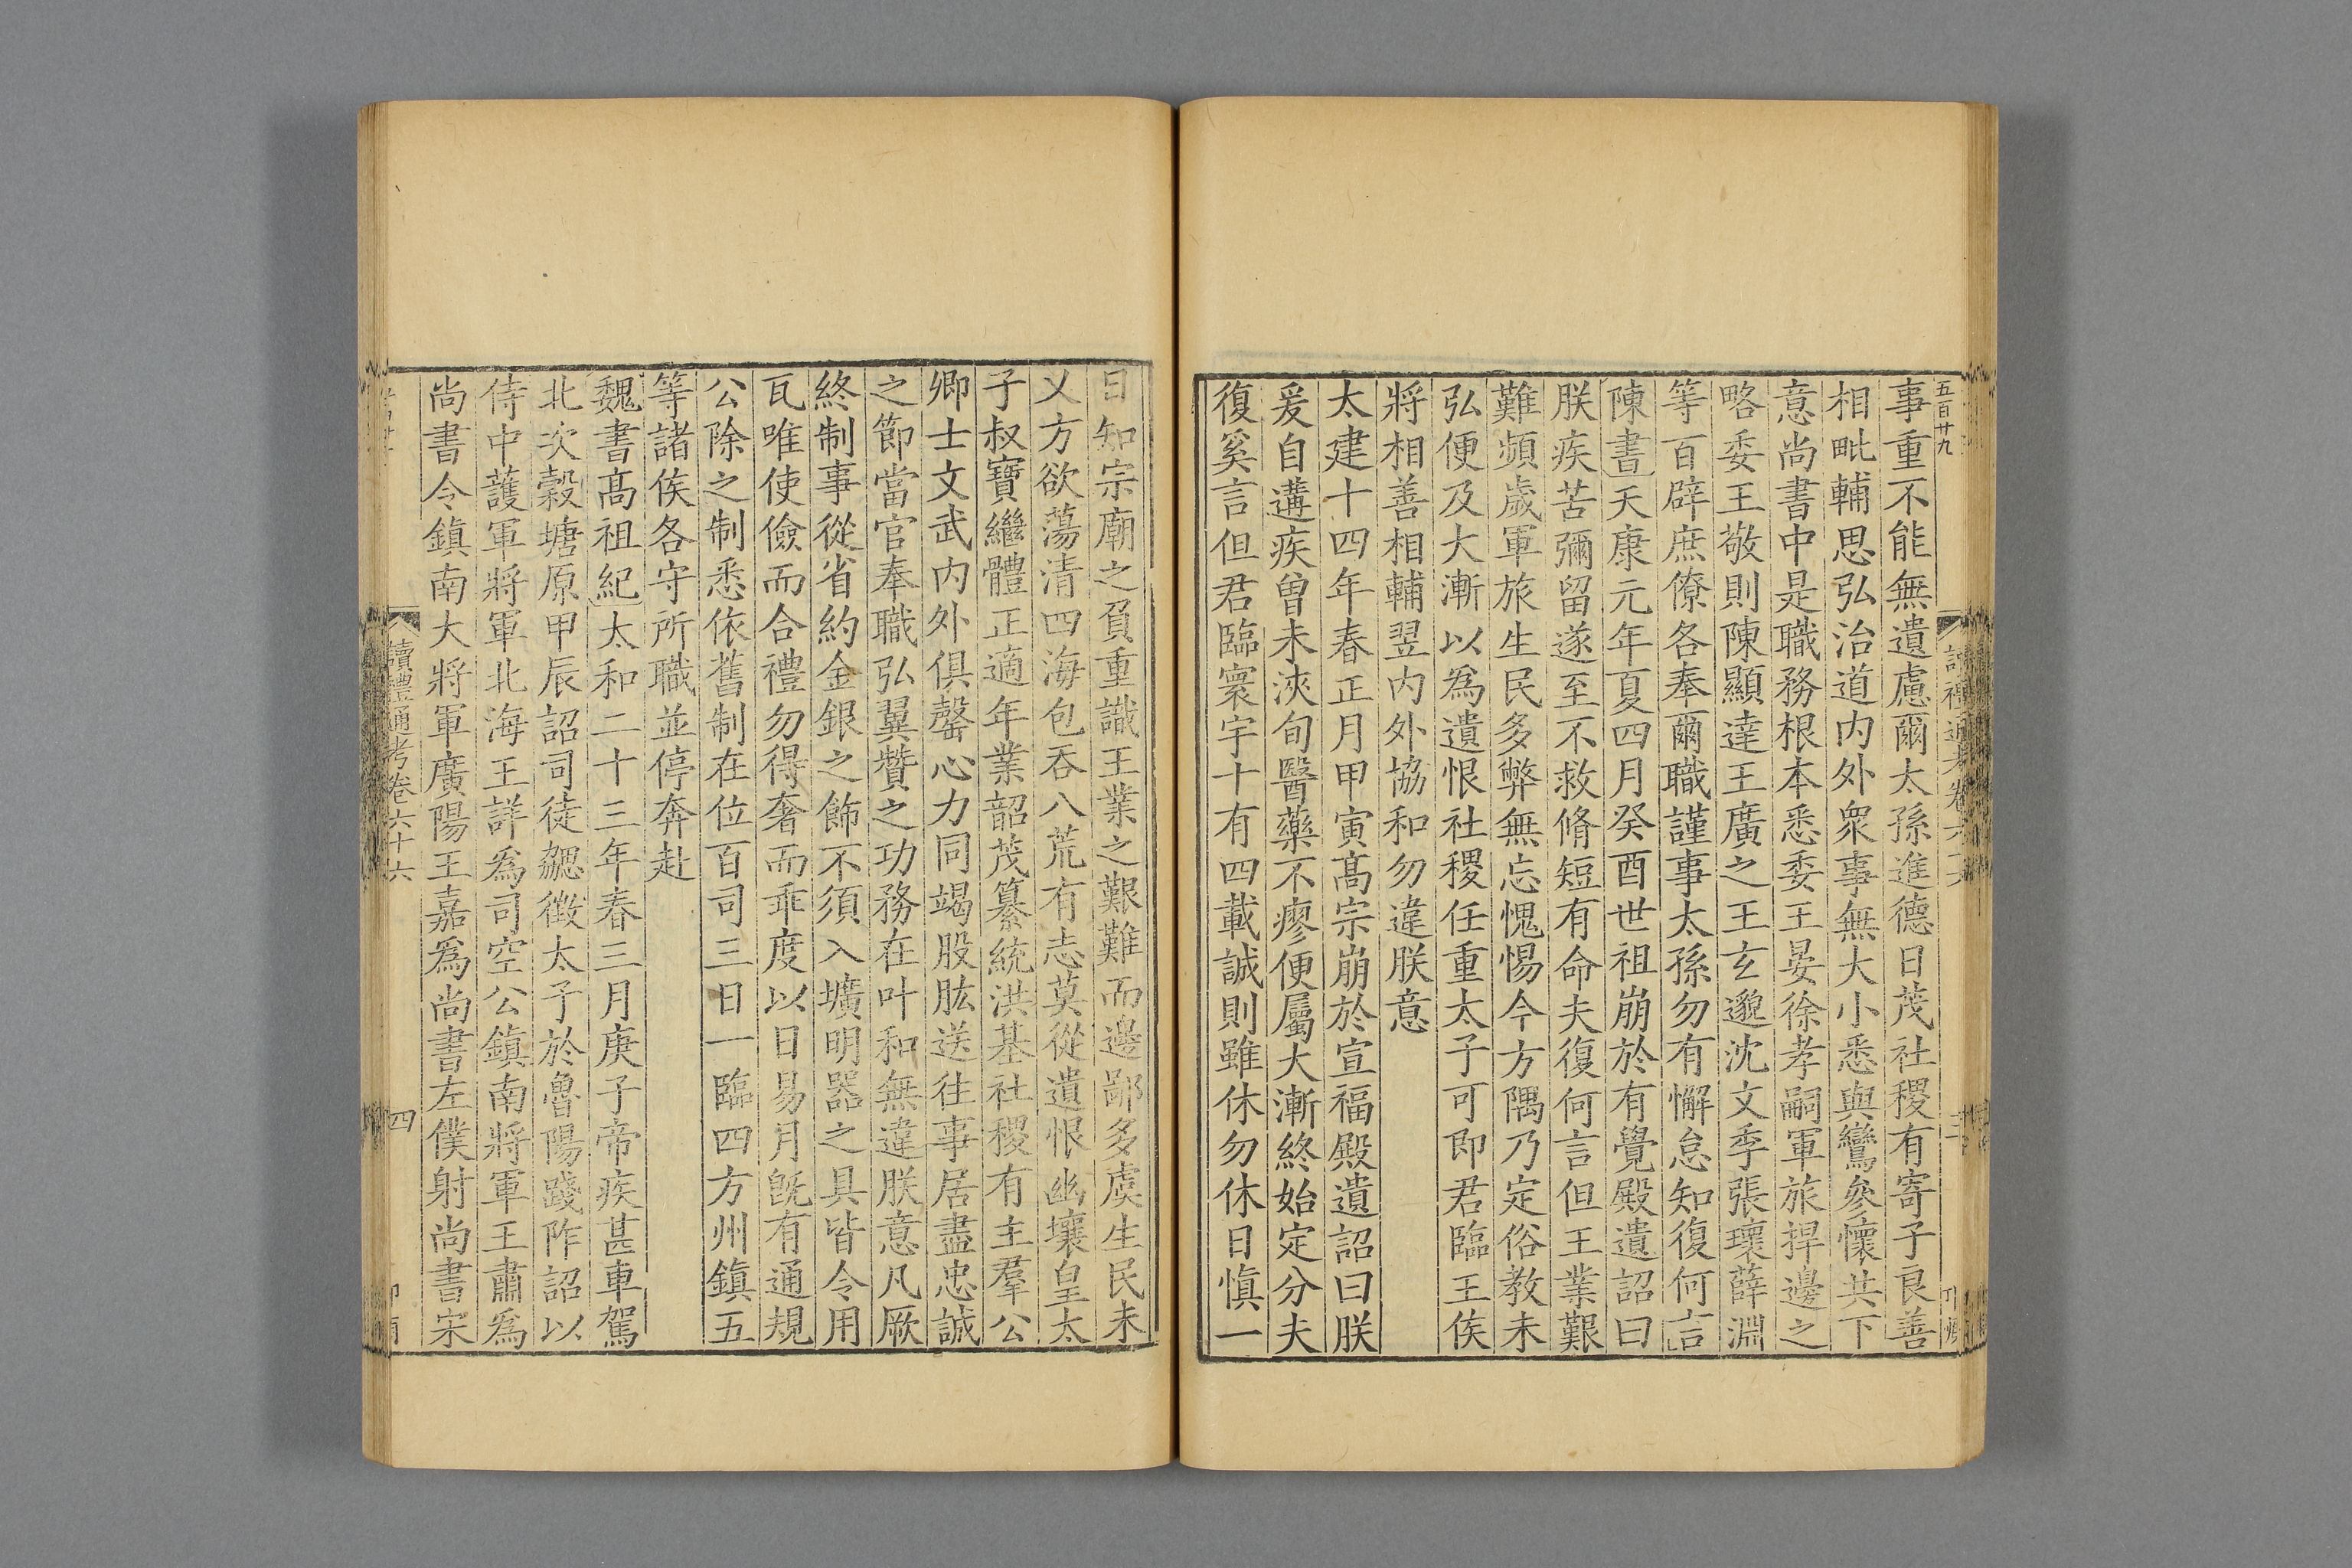 五百廿九
事重不能無遺慮爾太孫進德日茂社稷有寄子良善
相毗輔思弘治道内外衆事無大小悉與鸞參懷共下
意尚書中是職務根本悉委王晏徐孝嗣軍旅捍邊之
略委王敬則陳顯達王廣之王玄邈沈文季張瓌薛淵
等百辟庶僚各奉爾職謹事太孫勿有懈怠知復何言
陳書天康元年夏四月癸酉世祖崩於有覺殿遺詔曰
朕疾苦彌留遂至不救脩短有命夫復何言但王業艱
難頻歲軍旅生民多弊無忘愧惕今方隅乃定俗教未
弘便及大漸以爲遺恨社稷任重太子可即君臨王侯
將相善相輔翌内外協和勿違朕意
太建十四年春正月甲寅髙宗崩於宣福殿遺詔曰朕
爰自遘疾曾未浹旬醫藥不瘳便屬大漸終始定分夫
復奚言但君臨寰宇十有四載誠則雖休勿休日慎一
日知宗廟之負重識王業之艱難而邊鄙多虞生民未
乂方欲蕩清四海包吞八荒有志莫從遺恨幽壤皇太
子叔寶繼體正適年業韶茂纂統洪基社稷有主羣公
卿士文武内外俱罄心力同竭股肱送往事居盡忠誠
之節當官奉職弘翼贊之功務在叶和無違朕意凡厥
終制事從省約金銀之飾不須入壙明器之具皆令用
瓦唯使儉而合禮勿得奢而乖度以日易月既有通規
公除之制悉依舊制在位百司三日一臨四方州鎮五
等諸侯各守所職並停奔赴
魏書髙祖紀太和二十三年春三月庚子帝疾甚車駕
北次穀塘原甲辰詔司徒勰徵太子於魯陽踐阼詔以
侍中護軍將軍北海王詳爲司空公鎮南將軍王肅爲
尚書令鎮南大將軍廣陽王嘉爲尚書左僕射尚書宋
讀禮通考卷六十六
四